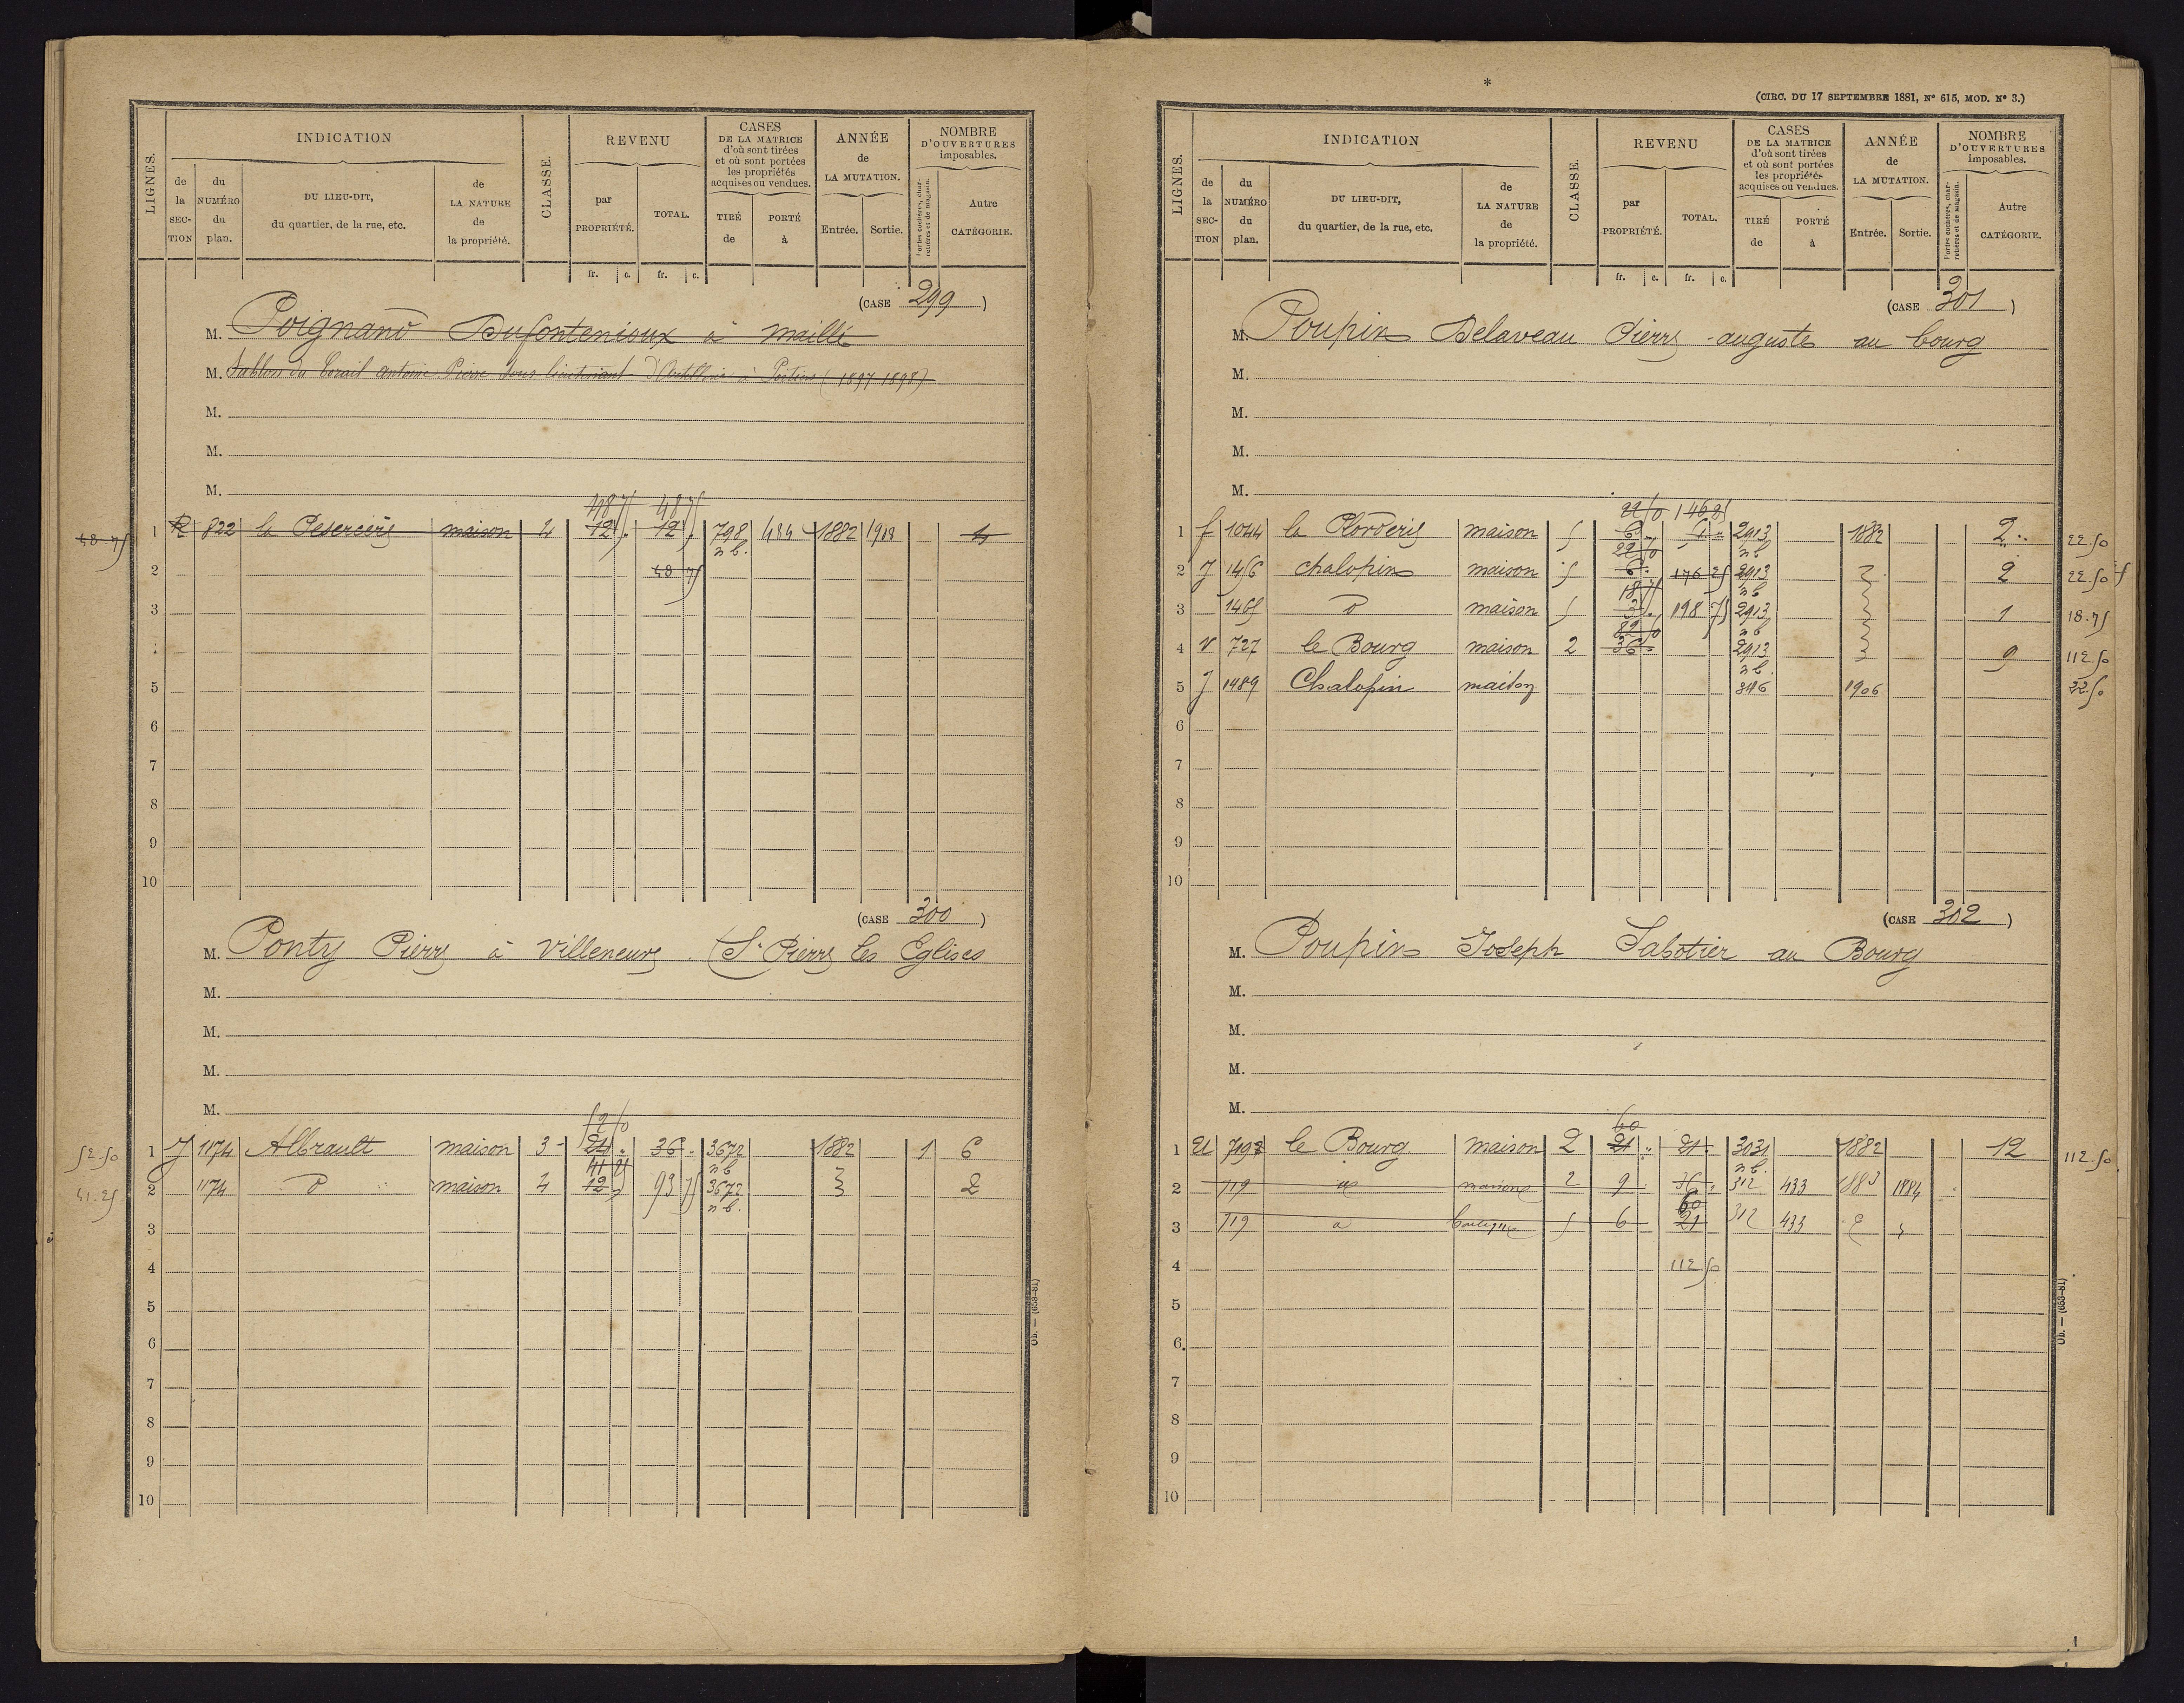 INDICATION
CLASSE.
REVENU
CASES
DE LA MATRICE
d'où sont tirées
et où sont portées
les propriétés
acquises ou vendues.
ANNÉE
de
LA MUTATION.
NOMBRE
D'OUVERTURES
imposables.
LIGNES.
de
la
SEC-
TION
du
NUMÉRO
du
plan.
DU LIEU-DIT,
du quartier, de la rue, etc.
de
LA NATURE
de
la propriété.
par
PROPRIÉTÉ.
TOTAL.
TIRÉ
de
PORTÉ
à
Entrée.
Sortie.
Portes cochères, char-
retières et de magasin.
Autre
CATÉGORIE.
fr. c. fr. c.
(CASE 299)
M. Poignand Dufontenioux à maillé
M. antoine Pierre sous lieutenant d'Artillerie à Poitiers (1897-1898)
M.
M.
M.
48 75 48 75
48.75 1 R 822 la maison 4 12 12 798 484 1882 1918 4
n b.
2 48 75
3
4
5
6
7
8
9
10
(CASE 300)
M. Ponty Pierre à Villeneuve (St Pierre les Eglises
M.
M.
M.
M.
52 50
52.50 1 J 1174 Albrault maison 3 24 36 3672 1882 1 6
41 25 n b
41.25 2 1174 d maison 4 12 93 75 3672 2
n b.
3
4
5
6
7
8
9
10
Ob. — (653-81)
*
(CIRC. DU 17 SEPTEMBRE 1881, N° 615, MOD. N° 3.)
LIGNES.
INDICATION
CLASSE.
REVENU
CASES
DE LA MATRICE
d'où sont tirées
et où sont portées
les propriétés
acquises ou vendues.
ANNÉE
de
LA MUTATION.
NOMBRE
D'OUVERTURES
imposables.
de
la
SEC-
TION
du
NUMÉRO
du
plan.
DU LIEU-DIT,
du quartier, de la rue, etc.
de
LA NATURE
de
la propriété.
par
PROPRIÉTÉ.
TOTAL.
TIRÉ
de
PORTÉ
à
Entrée.
Sortie.
Portes cochères, char-
retières et de magasin.
Autre
CATÉGORIE.
fr. c. fr. c.
(CASE 301)
M. Poupin Delaveau Pierre auguste au bourg
M.
M.
M.
M.
22 50 146 25
1 f 1044 la maison 5 6 2913 1882 2 22.50
22 50 n b
2 J 1456 chalopin maison 5 6 176 25 2913 2 22.50
18 75 n b
3 1465 d maison 5 3 198 75 2913 1 18.75
82 50 n b
4 V 727 le Bourg maison 2 36 2913 9 112.50
n b.
5 J 1489 Chalopin maison 1906 22.50
6
7
8
9
10
(CASE 302)
M. Poupin Joseph Sabotier au Bourg
M.
M.
M.
M.
60
1 le Bourg maison 2 21 21 3031 1882 12 112.50
n b.
2 719 maison 2 9 36 312 433 1883 1884
60
3 719 d boutique 5 6 21 312 433
4 112 50
5
6
7
8
9
10
Ob. — (653-81)